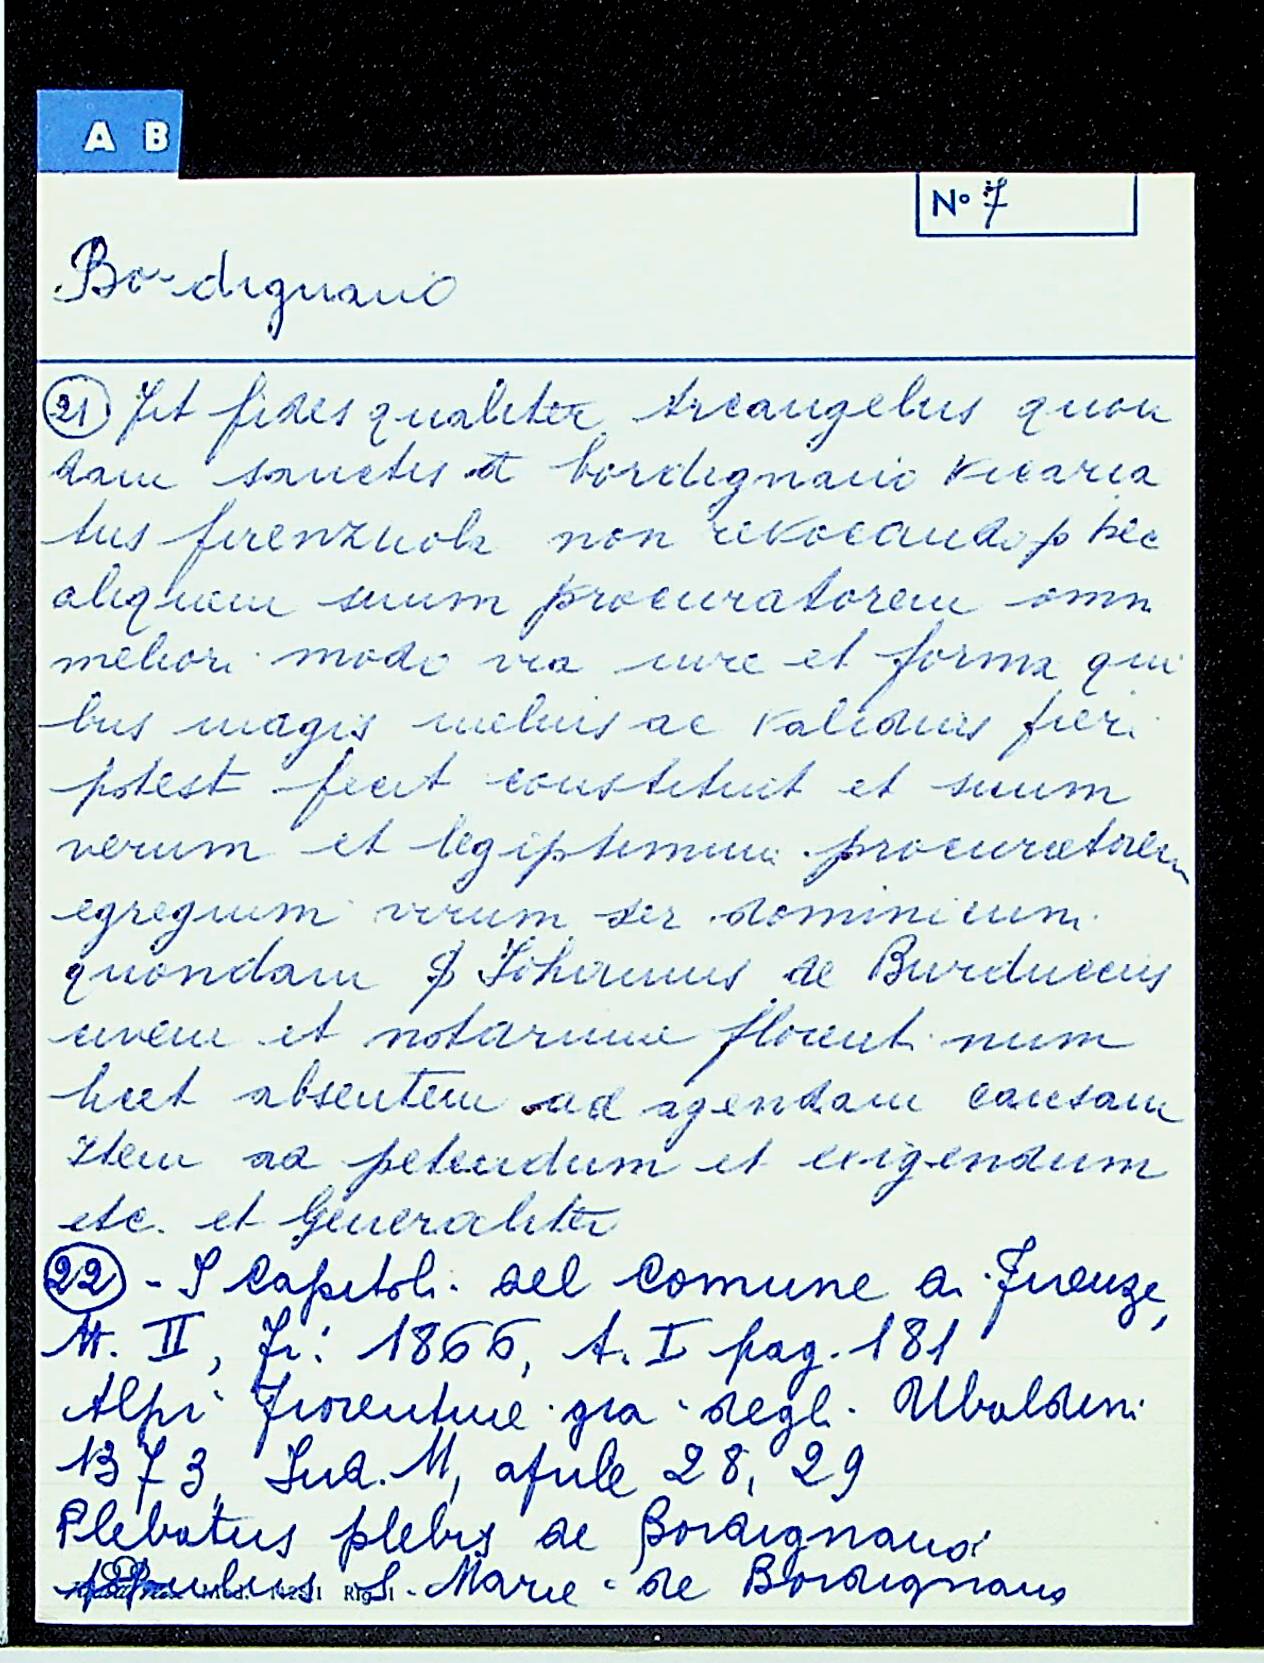 A B
N° 7
Bordignano
21) Fit fides qualiter Arcangelus quon
dam sanctis d bordignano vicaria
tus firenzuole non revocando p hec
aliquem suum procuratorem omn
meliori modo via iure et forma qui
bus magis melius ac validius fieri
potest fecit constituit et suum
verum et legiptimum procuratorem
egregium virum ser dominicum
quondam S Johannis de
civem et notarium florentinum
licet absentem ad agendam causam
Item ad petendum et exigendum
etc. et Generaliter
22) - I Capitoli del Comune di Firenze,
II, Fi: 1866, t. I pag. 181
Alpi Fiorentine già degli Ubaldini
1373, Ind. 11, aprile 28, 29
Plebatus plebis de Bordignano
populus S. Marie de Bordignano